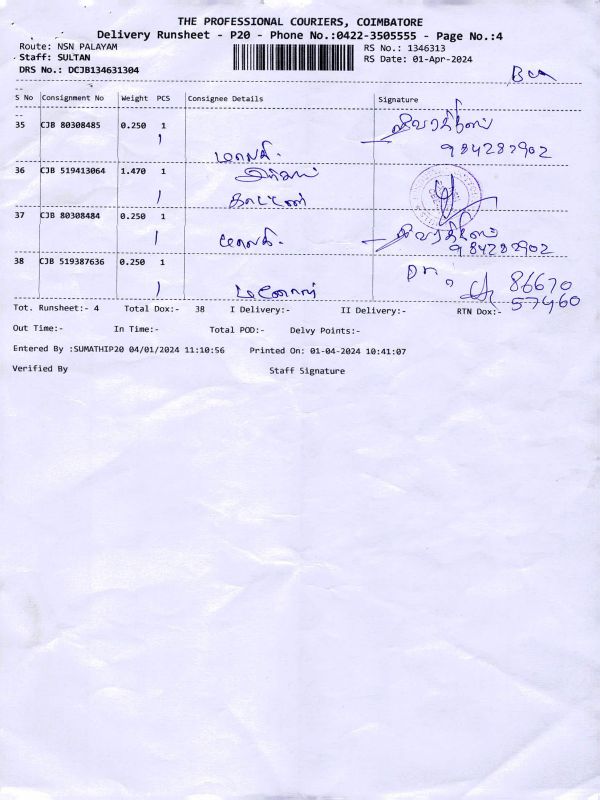 THE PROFESSIONAL COURIERS, COIMBATORE
Delivery Runsheet - P20 - Phone No.:0422-3505555 - Page No.:4
Route: NSN PALAYAM RS No.: 1346313
Staff: SULTAN RS Date: 01-Apr-2024
DRS No.: DCJB134631304
S No Consignment No Weight PCS Consignee Details Signature
35 CJB 80308485 0.250 1
984282902
36 CJB 519413064 1.470 1
37 CJB 80308484 0.250 1
984282902
38 CJB 519387636 0.250 1 86670
மனோகர் 57460
Tot. Runsheet:- 4 Total Dox:- 38 I Delivery:- II Delivery:- RTN Dox:-
Out Time:- In Time:- Total POD:- Delvy Points:-
Entered By :SUMATHIP20 04/01/2024 11:10:56 Printed On: 01-04-2024 10:41:07
Verified By Staff Signature